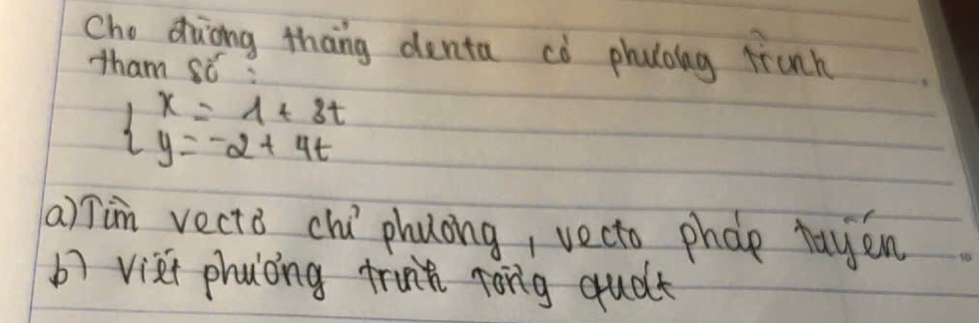 Cho đường thẳng denta có phương trình
tham số :
{ x = 1 + 3t
y = -2 + 4t
a) Tìm vectơ chỉ phương, vecto pháp tuyến
b) Viết phương trình tổng quát